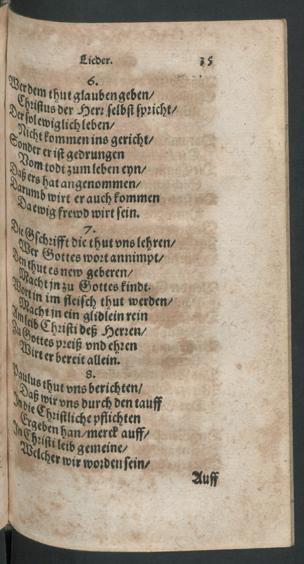 Lieder. 35
6.
Wer dem thut glauben geben/
Christus der Herr selbst spricht/
Der sol ewiglich leben/
Nicht kommen ins gericht/
Sonder er ist gedrungen
Vom todt zum leben eyn/
Daß ers hat angenommen/
Darumb wirt er auch kommen
Da ewig frewd wirt sein.
7.
Die Gschrifft die thut vns lehren/
Wer Gottes wort annimpt/
Den thut es new geberen/
Macht jn zu Gottes kindt.
Wort in im fleisch thut werden/
Macht jn ein glidlein rein
Im leib Christi deß Herren/
Zu Gottes preiß vnd ehren
Wirt er bereit allein.
8.
Paulus thut vns berichten/
Daß wir vns durch den tauff
In die Christliche pflichten
Ergeben han/ merck auff/
In Christi leib gemeine/
Welcher wir worden sein/
Auff